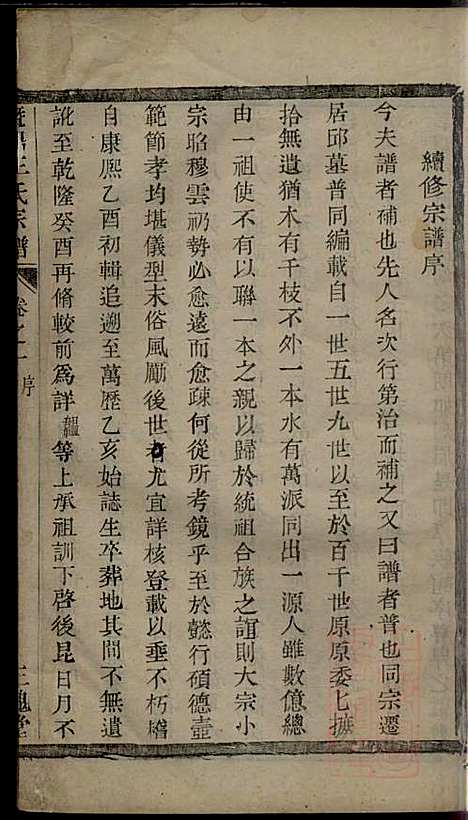 續修宗譜序
今夫譜者補也先人名次行第治而補之又曰譜者普也同宗遷
居邱墓普同編載自一世五世九世以至於百千世原原委七摭
拾無遺猶木有千枝不外一本水有萬派同出一源人雖數億總
由一祖使不有以聯一本之親以歸於統祖合族之誼則大宗小
宗昭穆雲礽勢必愈遠而愈疎何從所考鏡乎至於懿行碩德壼
範節孝均堪儀型末俗風勵後世者尤宜詳核登載以垂不朽嗜
自康熈乙酉初輯追遡至萬歷乙亥始誌生卒葬地其間不無遺
訛至乾隆癸酉再脩較前爲詳龘等上承祖訓下啓後昆日月不
王氏宗譜
卷之一
序
三槐堂